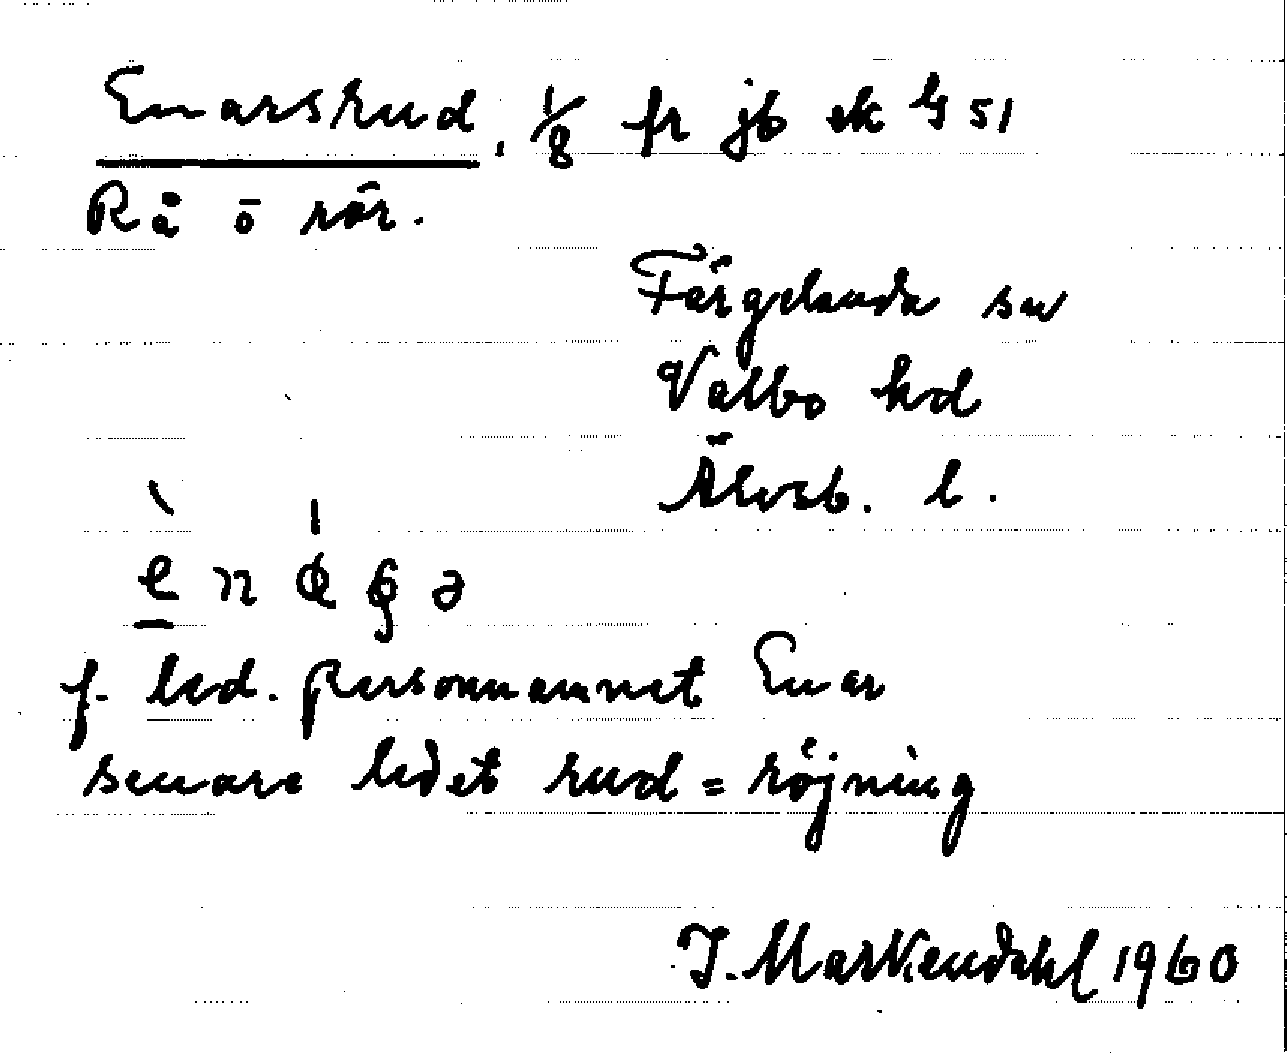 Enarsrud, 1/8 fr jb ek G 51
Rå ö rör.
Färgelanda sn
Valbo hd
Älvsb. l.
f. led. personnamnet Enar
senare ledet rud = röjning
J. Markendahl 1960